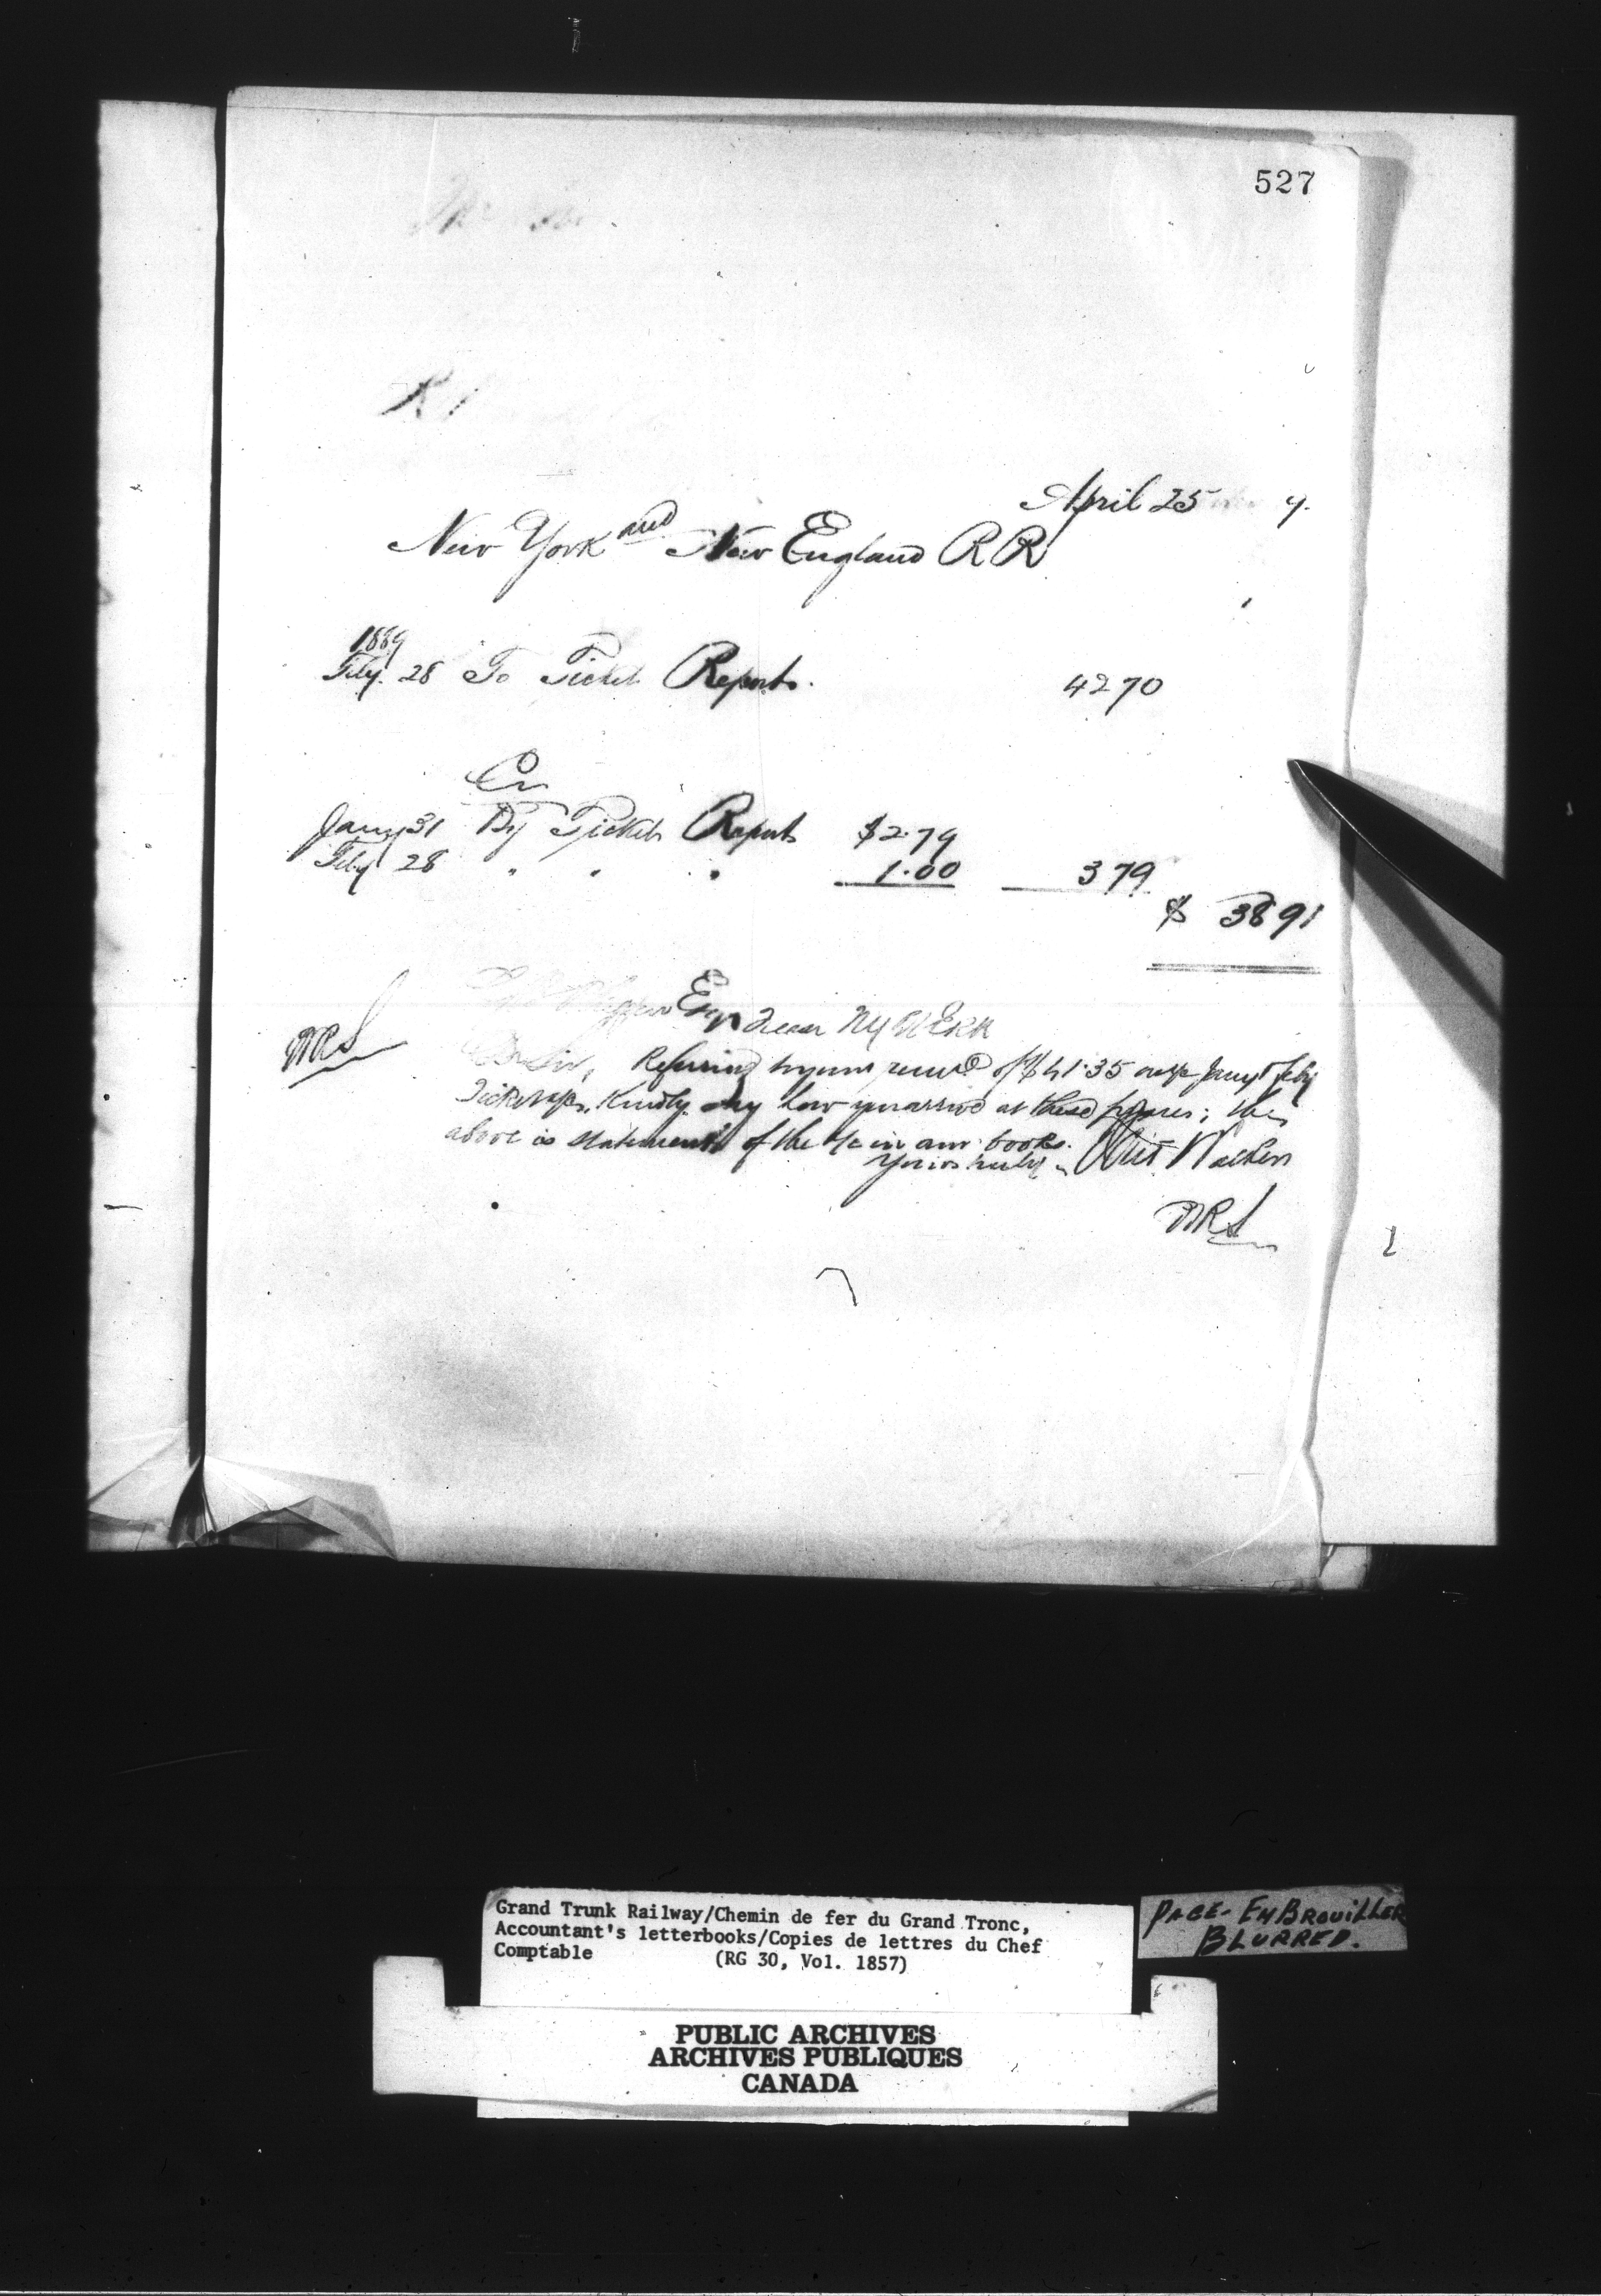 527
April 25
New York and New England RR
1889
Feby. 28 To Ticket Reports. 42 70
Cr
Jany 31 By Tickets Reports $2.79
Feby 28 " " " 1.00 3 79
$ 38 91
Esq Treas NY & NERR
MRS
Dr Sir, Referring to yours of $41.35 Jany & Feby
Ticket Kindly say how you arrive at these figures; the
above is statement of the a/c in our books.
Yours truly
MRS
Grand Trunk Railway/Chemin de fer du Grand Tronc,
Accountant's letterbooks/Copies de lettres du Chef
Comptable (RG 30, Vol. 1857)
PAGE - EMBROUILLER
BLURRED.
PUBLIC ARCHIVES
ARCHIVES PUBLIQUES
CANADA